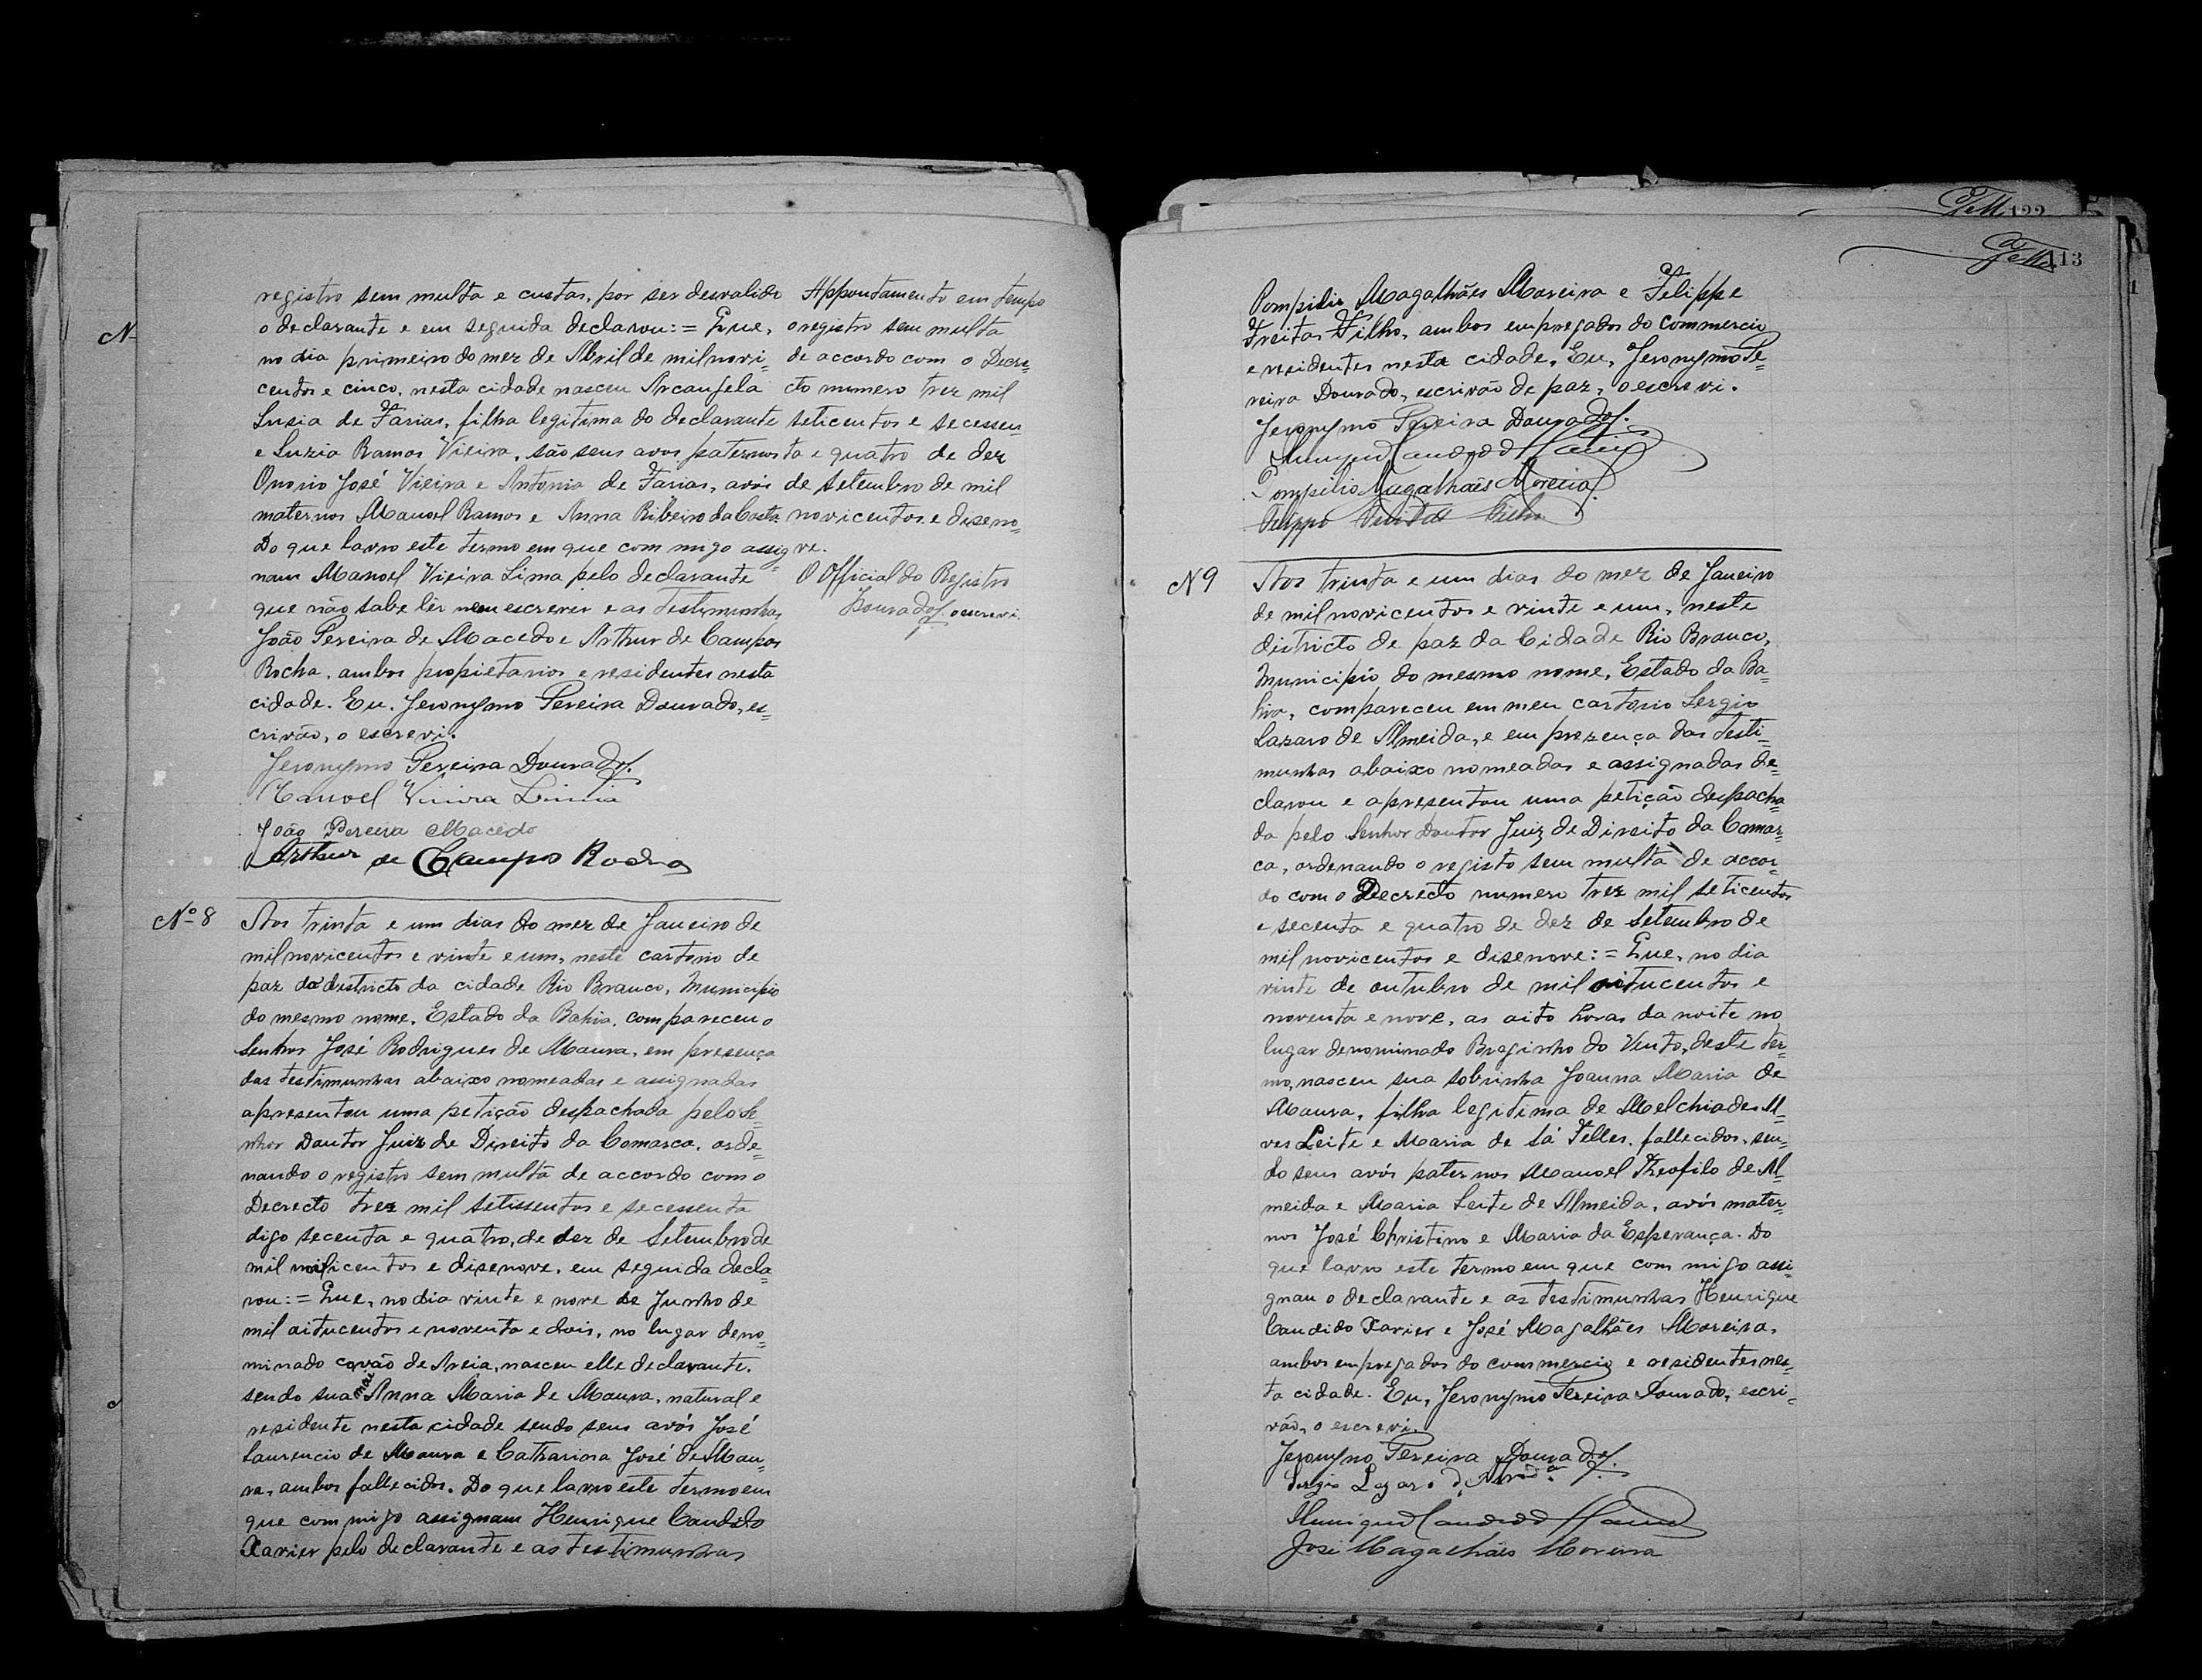 N
registro sem multa e custas, por ser desvalido
o declarante e em seguida declarou: = Que,
no dia primeiro do mez de Abril de mil novi=
centos e cinco, nesta cidade nasceu Arcanjela
Lusia de Farias, filha legitima do declarante
e Luzia Ramos Vieira, são seus avos paternos
Onorio José Vieira e Antonia de Farias, avós
maternos Manoel Ramos e Anna Ribeiro da Costa.
Do que lavro este termo em que commigo assig=
nam Manoel Vieira Lima pelo declarante
que não sabe lêr nem escrever e as testimunhas
João Pereira de Macedo e Arthur de Campos
Rocha, ambos propietarios e residentes nesta
cidade. Eu, Jeronymo Pereira Dourado, es=
crivão, o escrevi.
Jeronymo Pereira Dourado
Manoel Vieira Lima
João Pereira Macedo
Arthur de Campos Rocha
Appontamento em tempo
o registro sem multa
de accordo com o Decre=
cto numero trez mil
seticentos e secessen
ta e quatro de dez
de Setembro de mil
novicentos e diseno=
ve.
O Official do Registro
Dourado o escrevi.
Nº 8
Aos trinta e um dias do mez de Janeiro de
mil novicentos e vinte e um, neste cartorio de
paz do districto da cidade Rio Branco, Municipio
do mesmo nome, Estado da Bahia, compareceu o
Senhor José Rodrigues de Maura, em presença
das testimunhas abaixo nomeadas e assignadas
apresentou uma petição despachada pelo Se=
nhor Doutor Juiz de Direito da Comarca, orde=
nando o registro sem multa de accordo com o
Decrecto trez mil setissentos e secessenta
digo secenta e quatro, de dez de Setembro de
mil novicentos e disenove, em seguida decla=
rou: = Que, no dia vinte e nove de Junho de
mil oitucentos e noventa e dois, no lugar deno=
minado covão de Areia, nasceu elle declarante,
sendo sua mãi Anna Maria de Maura, natural e
residente nesta cidade sendo seus avós José
Laurencio de Maura e Catharina José de Mau=
ra, ambos fallecidos. Do que lavro este termo em
que commigo assignam Henrique Candido
Xavier pelo declarante e as testimunhas
122
113
Pompilio Magalhães Moreira e Felippe
Freitas Filho, ambos empregados do commercio
e residentes nesta cidade. Eu, Jeronymo Pe=
reira Dourado, escrivão de paz, o escrevi.
Jeronymo Pereira Dourado
Henrique Candido Xavier
Pompilio Magalhães Moreira
Felippe Freitas Filho
N 9
Aos trinta e um dias do mez de Janeiro
de mil novicentos e vinte e um, neste
districto de paz da Cidade Rio Branco,
Municipio do mesmo nome, Estado da Ba=
hia, compareceu em meu cartorio Sergio
Lazaro de Almeida, e em prezença das testi=
munhas abaixo nomeadas e assignadas de=
clarou e apresentou uma petição despacha=
da pelo Senhor Doutor Juiz de Direito da Comar=
ca, ordenando o registo sem multa de accor=
do com o Decrecto numero trez mil seticentos
e secenta e quatro de dez de Setembro de
mil novicentos e disenove: = Que, no dia
vinte de outubro de mil oitucentos e
noventa e nove, as oito horas da noite no
lugar denominado Breginho do Vento, deste ter=
mo, nasceu sua sobrinha Joanna Maria de
Maura, filha legitima de Melchiades Al=
ves Leite e Maria de Sá Telles, fallecidos, sen=
do seus avós paternos Manoel Theofilo de Al=
meida e Maria Leite de Almeida, avós mater=
nos José Christino e Maria da Esperança. Do
que lavro este termo em que commigo assi=
gnam o declarante e as testimunhas Henrique
Candido Xavier e José Magalhães Moreira,
ambos empregados do commercio e residentes nes=
ta cidade. Eu, Jeronymo Pereira Dourado, escri=
vão, o escrevi.
Jeronymo Pereira Dourado
Sergio Lazaro d'Almida
Henrique Candido Xavier
José Magalhães Moreira